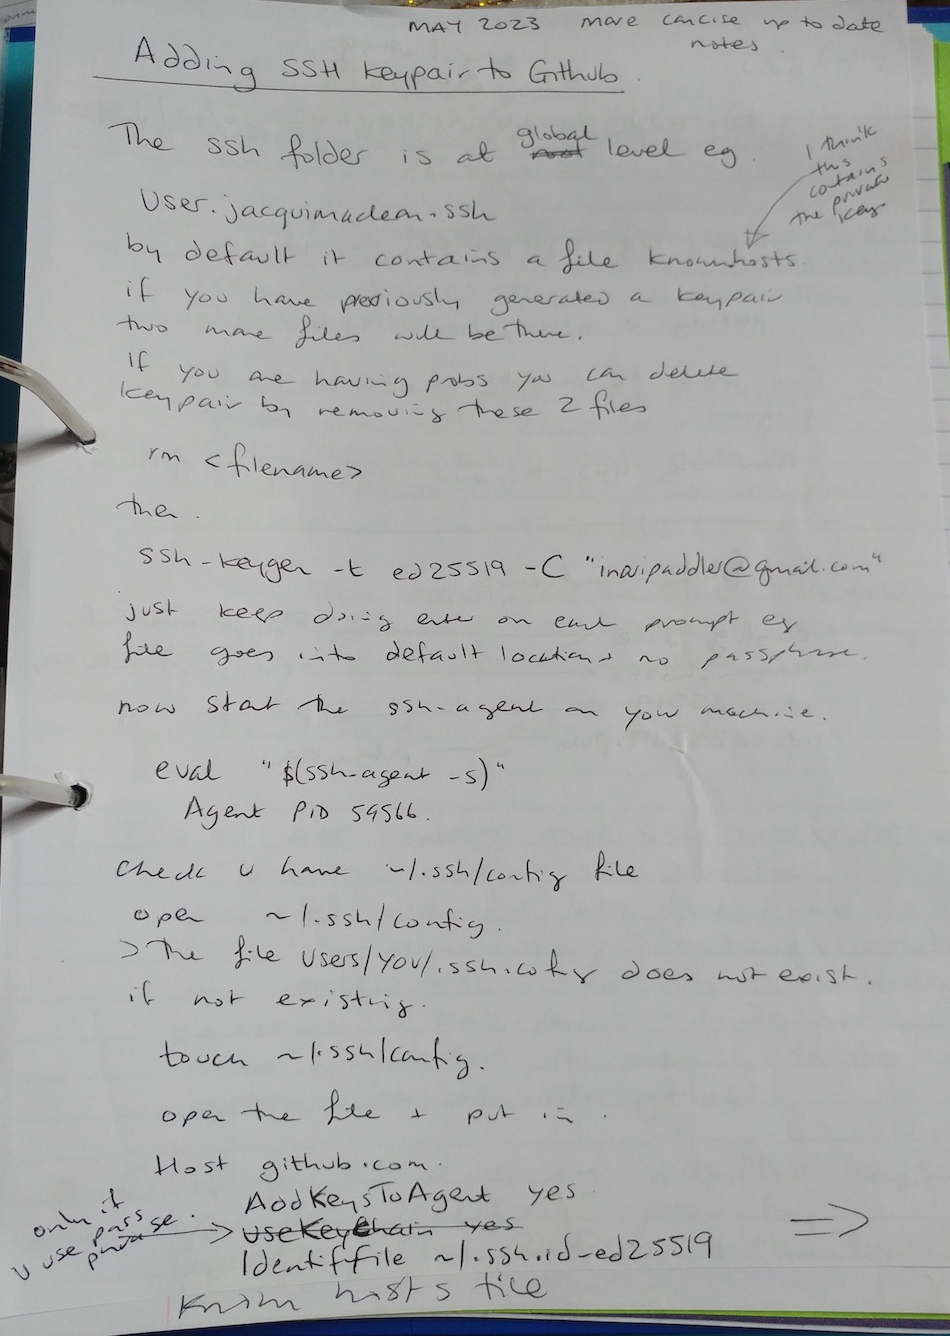 MAY 2023 more concise up to date
notes.
Adding SSH keypair to Github.
The ssh folder is at global level eg.
I think
this
contains
the private
key
User.jacquimaclean.ssh
by default it contains a file knownhosts.
if you have previously generated a keypair
two more files will be there.
if you are having probs you can delete
keypair by removing these 2 files
rm <filename>
then.
ssh-keygen -t ed25519 -C "inavipaddler@gmail.com"
just keep doing enter on each prompt eg
file goes into default location + no passphrase.
now start the ssh-agent on your machine.
eval "$(ssh-agent -s)"
Agent PID 59566.
check u have ~/.ssh/config file
open ~/.ssh/config.
> The file Users/YOU/.ssh.config does not exist.
if not existing.
touch ~/.ssh/config.
open the file + put in.
Host github.com.
AddKeysToAgent yes
only if
u use pass
phrase.
UseKeyChain yes
Identiffile ~/.ssh.id-ed25519
Known hosts file